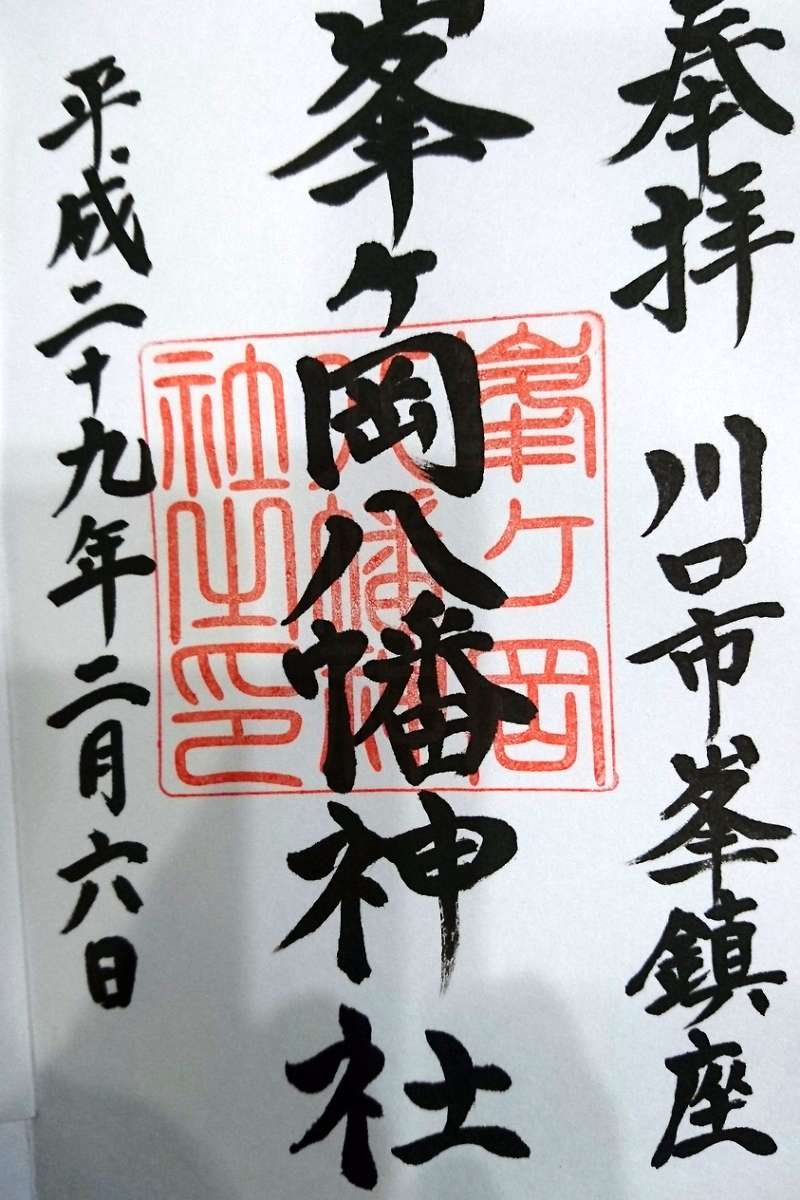 奉拝 川口市峯鎮座
峯ヶ岡八幡神社
峯ヶ岡
八幡神
社之印
平成二十九年二月六日